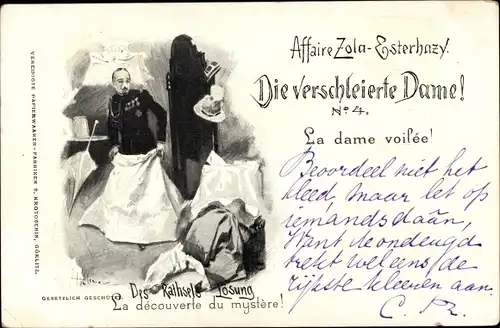 Affaire Zola-Esterhazy.
Die verschleierte Dame!
No 4.
La dame voilée!
Beoordeel niet het
kleed, maar let op
iemands daân,
Want de ondeugd
trekt wel eens de
rijkste kleeren aan.
Des Räthsels Lösung
La découverte du mystère!
GESETZLICH GESCHÜTZT
VEREINIGTE PAPIERWAAREN-FABRIKEN S. KROTOSCHIN, GÖRLITZ.